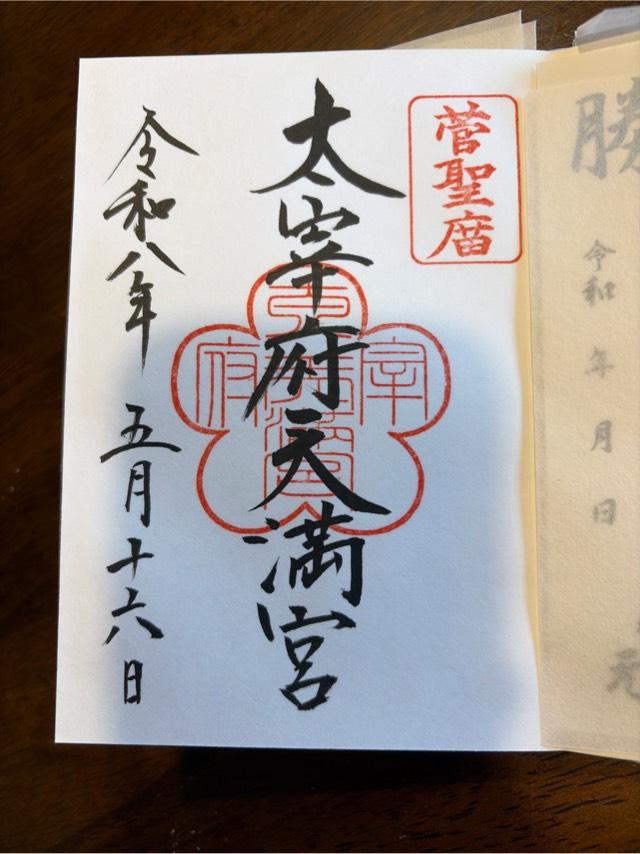 勝
令和 年 月 日
元
菅聖庿
太宰府天満宮
令和八年 五月十六日